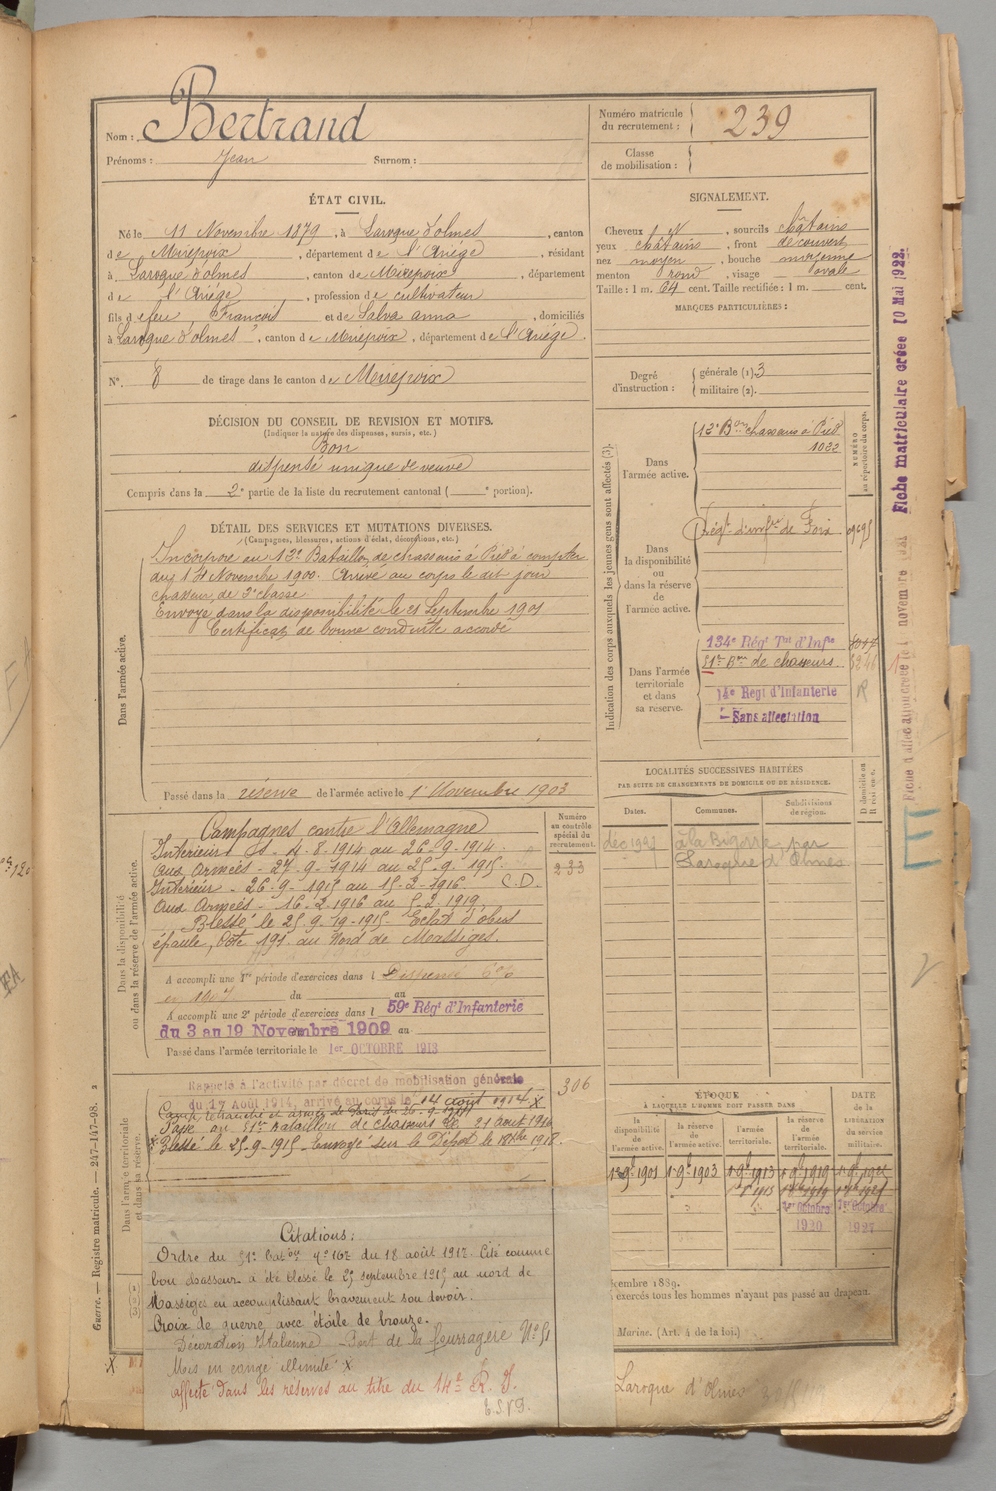 Nom : Bertrand
Prénoms : Jean Surnom :
Numéro matricule
du recrutement : 239
Classe
de mobilisation :
ÉTAT CIVIL.
Né le 11 Novembre 1879, à Laroque d'olmes, canton
de Mirepoix, département de l'Ariége, résidant
à Laroque d'olmes, canton de Mirepoix, département
de l'Ariége, profession de cultivateur
fils de feu François et de Salva anna, domiciliés
à Laroque d'olmes, canton de Mirepoix, département de l'Ariége.
N°. 8 de tirage dans le canton de Mirepoix
SIGNALEMENT.
Cheveux N, sourcils châtains
yeux châtains, front découvert
nez moyen, bouche moyenne
menton rond, visage ovale
Taille : 1 m. 64 cent. Taille rectifiée : 1 m. cent.
MARQUES PARTICULIÈRES :
Degré
d'instruction :
générale (1). 3
militaire (2).
DÉCISION DU CONSEIL DE REVISION ET MOTIFS.
(Indiquer la nature des dispenses, sursis, etc.)
Bon
dispensé unique de veuve
Compris dans la 2e partie de la liste du recrutement cantonal ( e portion).
DÉTAIL DES SERVICES ET MUTATIONS DIVERSES.
(Campagnes, blessures, actions d'éclat, décorations, etc.)
Dans l'armée active.
Incorporé au 12e Bataillon de chasseurs à Pied à compter
du 14 Novembre 1900. Arrivé au corps le dit jour
chasseur de 2e classe
Envoyé dans la disponibilité le 21 Septembre 1901
Certificat de bonne conduite accordé
Passé dans la réserve de l'armée active le 1 Novembre 1903
Indication des corps auxquels les jeunes gens sont affectés (3).
NUMÉRO
au répertoire du corps.
Dans
l'armée active.
12e Bon chasseurs à Pied
1022
Dans
la disponibilité
ou
dans la réserve
de
l'armée active.
Régt d'infrie de Foix
Dans l'armée
territoriale
et dans
sa réserve.
134e Régt Tal d'Infie
51e Bon de chasseurs
14e Regt d'Infanterie
Sans affectation
R
Fiche matriculaire créée 10 Mai 1922
LOCALITÉS SUCCESSIVES HABITÉES
PAR SUITE DE CHANGEMENTS DE DOMICILE OU DE RÉSIDENCE.
D domicile ou
R résidence.
Dates.
Communes.
Subdivisions
de région.
à la Bigorre par
Laroque d'Olmes
Dans la disponibilité
ou dans la réserve de l'armée active.
Numéro
au contrôle
spécial du
recrutement.
233
Campagnes contre l'Allemagne
Intérieur du 4.8.1914 au 26.9.1914.
Aux Armées - 27.9.1914 au 25.9.1915.
Intérieur - 26.9.1915 au 15.2.1916. C.D.
Aux Armées - 16.2.1916 au 5.2.1919
Blessé le 25.9.1915 Eclat d'obus
épaule, Côte 191 au Nord de Massiges.
A accompli une 1re période d'exercices dans l Dispensé
du au
A accompli une 2e période d'exercices dans l 59e Régt d'Infanterie
du 3 au 19 Novembre 1909 au
Passé dans l'armée territoriale le 1er OCTOBRE 1913
Dans l'armée territoriale
et dans sa réserve.
306
Rappelé à l'activité par décret de mobilisation générale
du 1er Août 1914, arrivé au corps le 14 août 1914 X
Passé au 51e Bataillon de chasseurs le 21 août 1916
X Blessé le 25-9-1915
ÉPOQUE
À LAQUELLE L'HOMME DOIT PASSER DANS
DATE
de la
LIBÉRATION
du service
militaire.
la
disponibilité
de
l'armée active.
la réserve
de
l'armée active.
l'armée
territoriale.
la réserve
de
l'armée
territoriale.
1er 9bre 1901 1er 9bre 1903 1er 9bre 1913 1er 9bre 1919
1er Octobre 1er Octobre
1920 1927
Citations :
Ordre du 51e Baton N° 167 du 18 août 1917. Cité comme
bon chasseur a été blessé le 25 septembre 1915 au nord de
Massiges en accomplissant bravement son devoir.
Croix de guerre avec étoile de bronze.
Décoration Italienne - Port de la fourragère N° 51
Mis en congé illimité X
affecté dans les réserves au titre du 14e R. I.
cembre 1889.
exercés tous les hommes n'ayant pas passé au drapeau.
Marine. (Art. 4 de la loi.)
Laroque d'Olmes
Guerre. — Registre matricule. — 247-147-98.